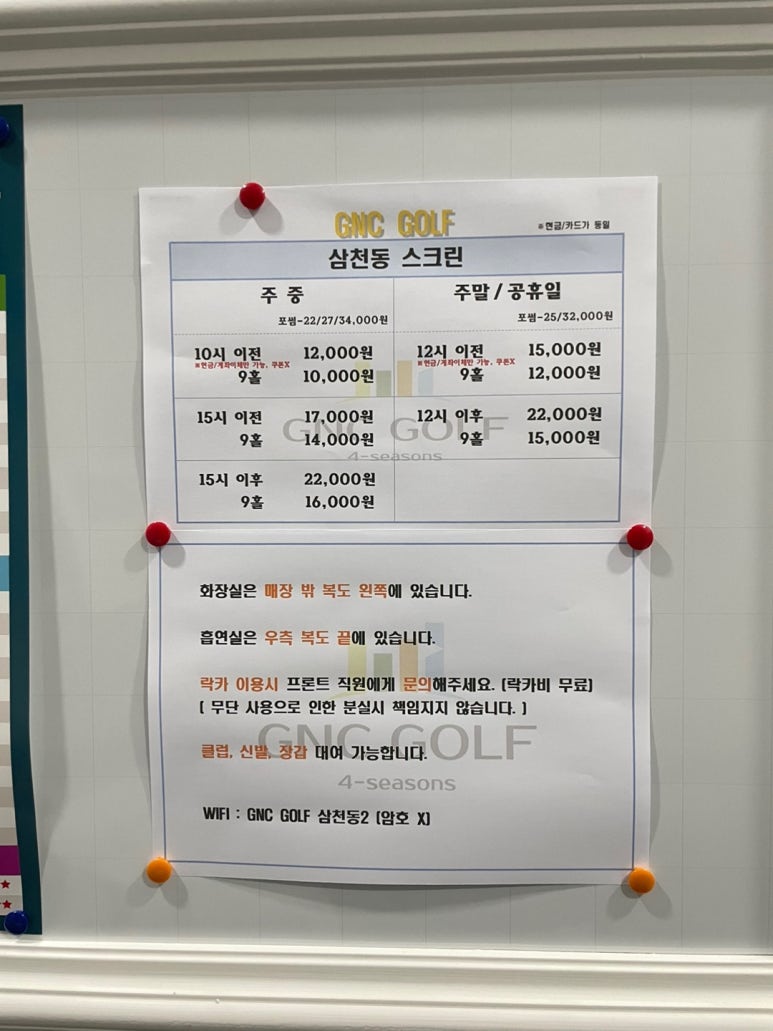 GNC GOLF
※현금/카드가 동일
삼천동 스크린
주 중
포썸-22/27/34,000원
10시 이전 12,000원
※현금/계좌이체만 가능, 쿠폰X
9홀 10,000원
15시 이전 17,000원
9홀 14,000원
15시 이후 22,000원
9홀 16,000원
주말 / 공휴일
포썸-25/32,000원
12시 이전 15,000원
※현금/계좌이체만 가능, 쿠폰X
9홀 12,000원
12시 이후 22,000원
9홀 15,000원
GNC GOLF
4-seasons
화장실은 매장 밖 복도 왼쪽에 있습니다.
흡연실은 우측 복도 끝에 있습니다.
락카 이용시 프론트 직원에게 문의해주세요. (락카비 무료)
( 무단 사용으로 인한 분실시 책임지지 않습니다. )
클럽, 신발, 장갑 대여 가능합니다.
GNC GOLF
4-seasons
WIFI : GNC GOLF 삼천동2 (암호 X)